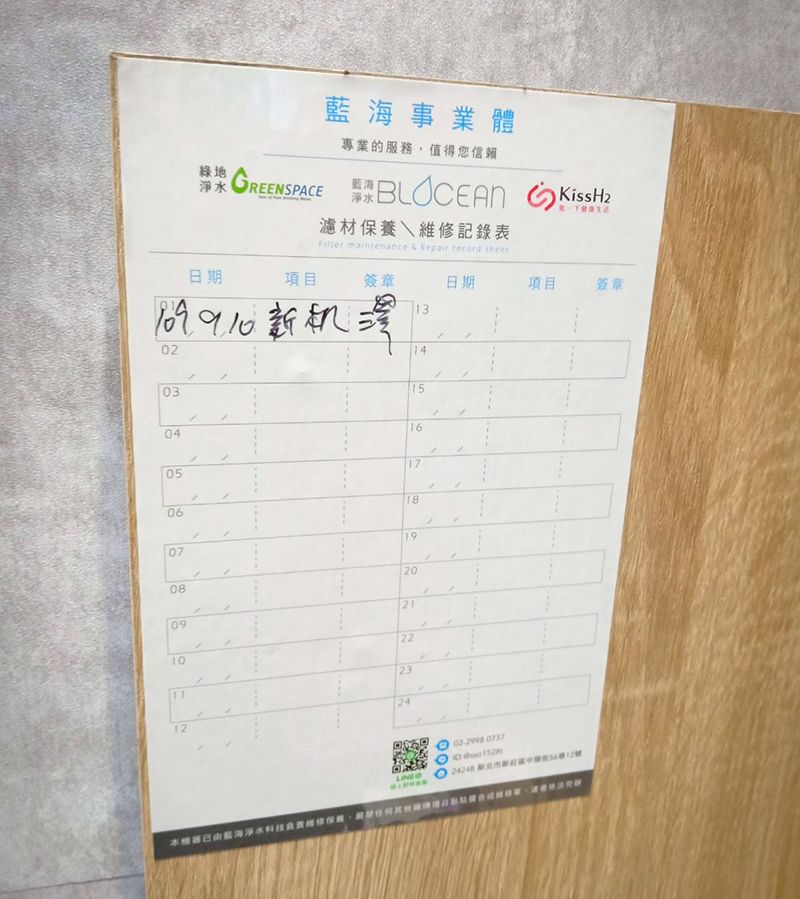 藍海事業體
專業的服務，值得您信賴
綠地淨水 GREENSPACE
藍海淨水 BLOCEAN
KissH2
氫一下健康生活
濾材保養＼維修記錄表
Filter maintenance & Repair record sheet
日期 項目 簽章 日期 項目 簽章
01 109/9/10 新机 澤 13 / /
02 / / 14 / /
03 / / 15 / /
04 / / 16 / /
05 / / 17 / /
06 / / 18 / /
07 / / 19 / /
08 / / 20 / /
09 / / 21 / /
10 / / 22 / /
11 / / 23 / /
12 / / 24 / /
LINE@
線上即時客服
02-2998 0737
ID:@sao1528t
24248 新北市新莊區中榮街56巷12號
本機器已由藍海淨水科技負責維修保養，嚴禁任何其他廠商擅自黏貼廣告或維修單，違者依法究辦